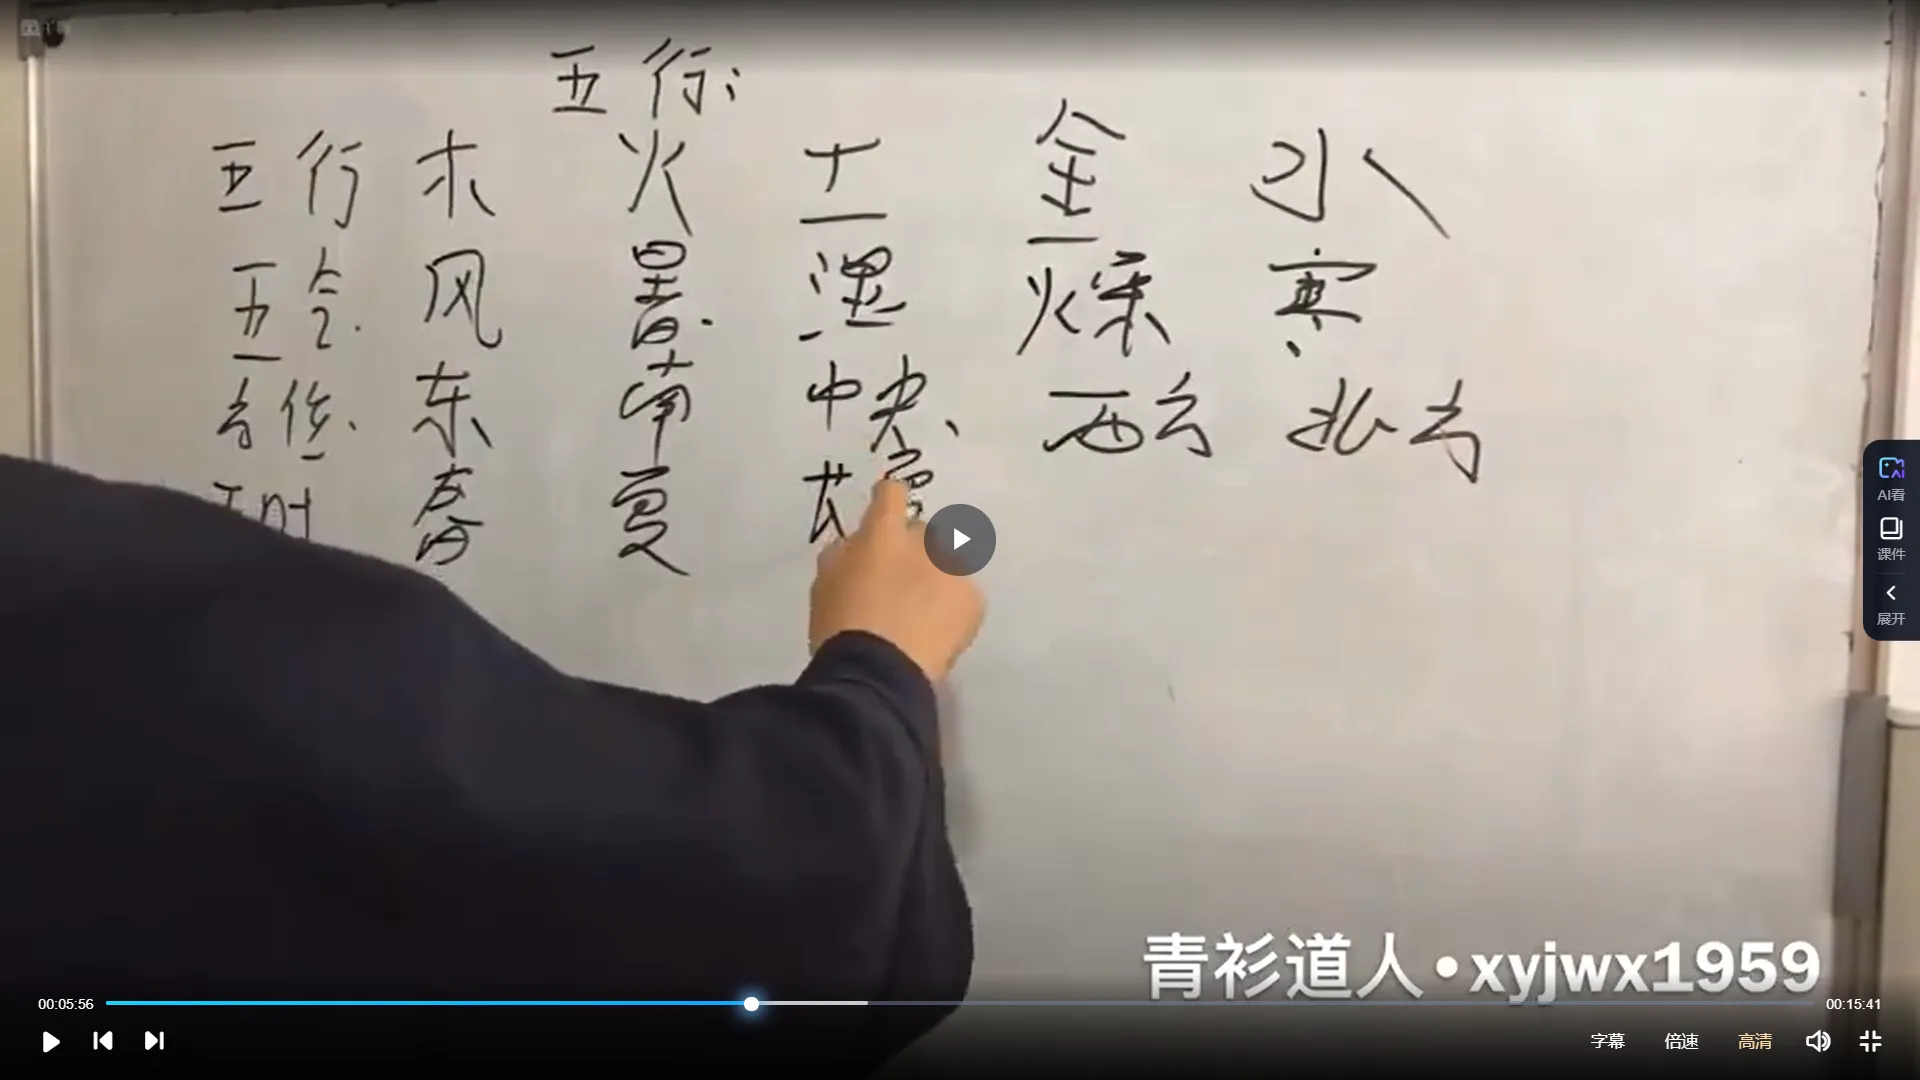 五行:
五行 木 火 土 金 水
五令. 风 暑. 湿 燥 寒
方位. 东 南 中央、 西方 北方
时 春 夏 长夏
AI看
课件
展开
青衫道人•xyjwx1959
00:05:56
00:15:41
字幕 倍速 高清